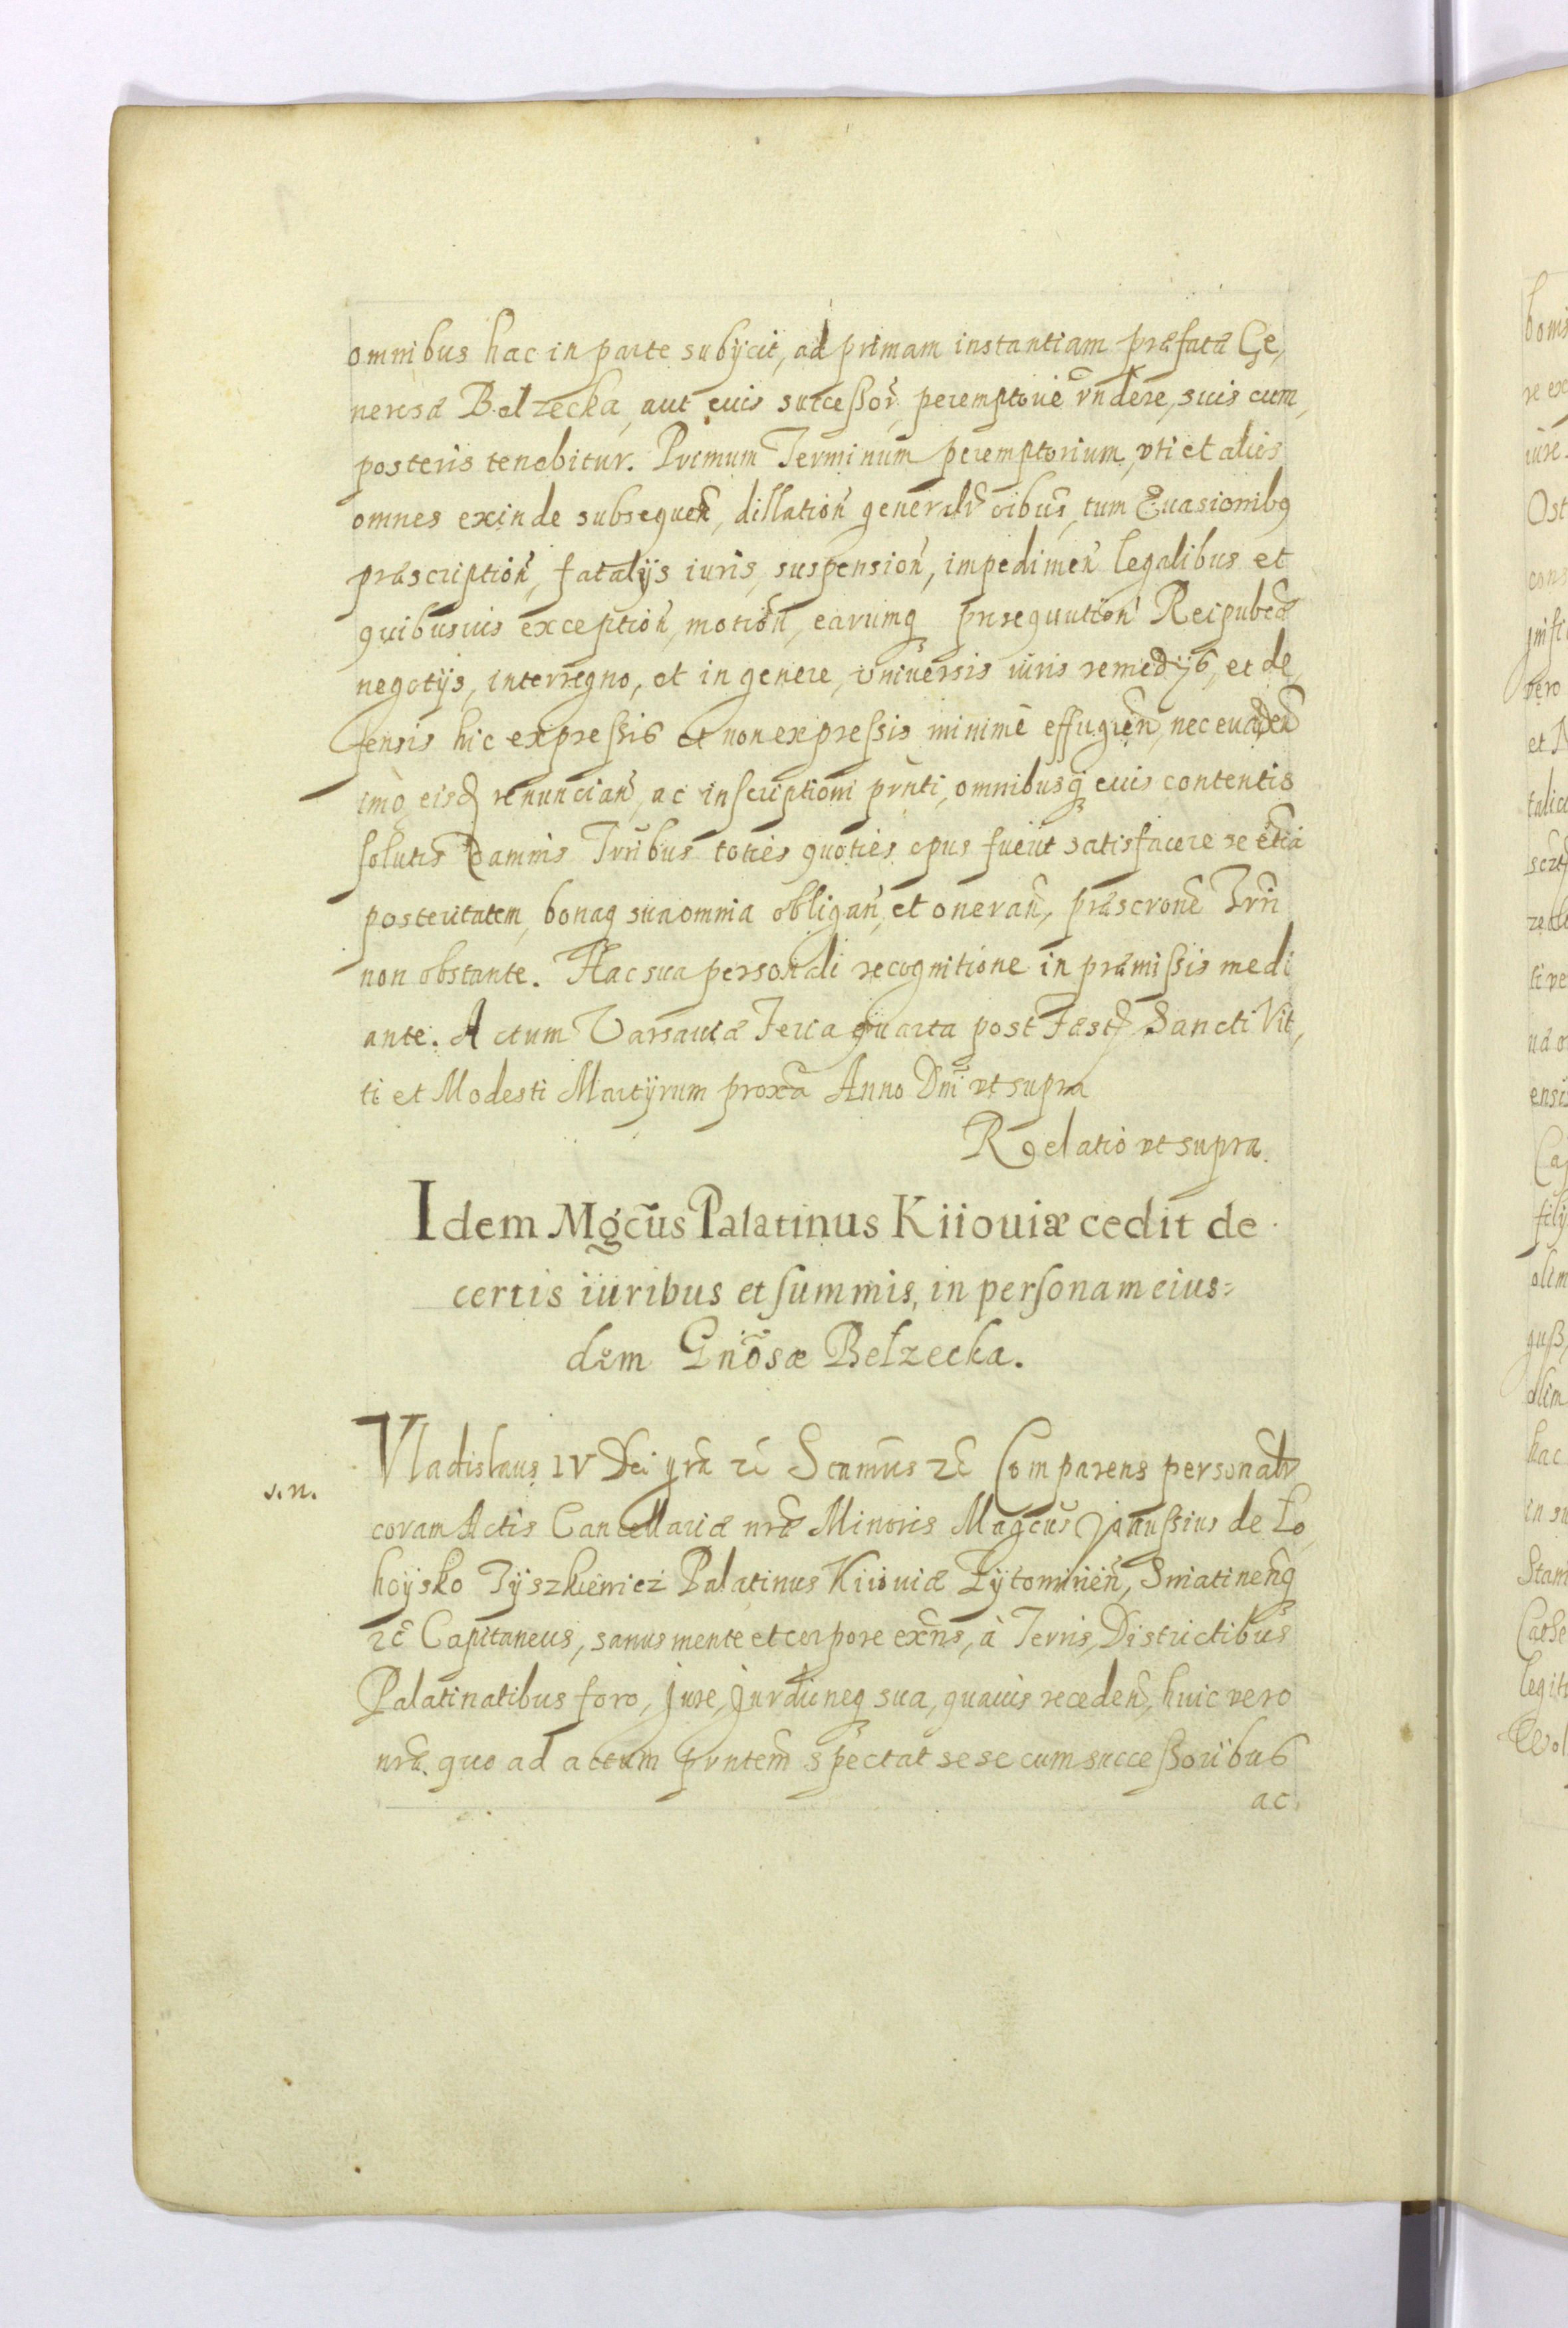 omnibus hac in parte subÿcit, ad primam instantiam præfatæ Ge,
nerosæ Belzecka, aut euis successor̃ peremptorie r̃ndere, suis cum,
posteris tenebitur. Primum Terminum peremptorium, vti et alios
omnes exinde subsequeñ, dillatioñ generalr̃ oibus, tum Euasionibꝯ
præscriptioñ, fatalÿs iuris, suspensioñ, impedimeñ legalibus et
quibusuis exceptioñ, motioñ, earumq̃ prosequutioñ Reipubcæ
negotÿs, interregno, et in genere, vniuersis iuris remedÿs, et de,
fensis hic expressis et non expressis minimè effugieñ, nec euadeñ
imo eisd̃ renunciañ, ac inscriptioni pr̃nti, omnibusq̃ euis contentis
solutis damnis Trr̃ibus toties quoties opus fuerit satisfacere se etiã
posteritatem, bonaq̃ sua omnia obligañ, et onerañ, præscronẽ Trr̃i
non obstante. Hac sua personali recognitione in præmissis medi
ante. Actum Varsauiæ Feria quarta post Fæst̃ Sancti Vit,
ti et Modesti Martÿrum proxã Anno Dñi vt supra
Relatio vt supra.
Idem Mgc̃us Palatinus Kiiouiæ cedit de
certis iuribus et summis, in personam eius=
dem Gñosæ Belzecka.
Vladislaus IV Dei grã zc̃ Scamus zc̃ Comparens personalr̃
s. n.
coram Actis Cancellariæ nrẽ Minoris Magc̃us Janussius de Lo,
hoÿsko Tÿszkiewicz Palatinus Kiiouiæ Zÿtomirieñ, Sniatinenq̃
zc̃ Capitaneus, sanus mente et corpore ex̃ns, à Terris, Districtibus
Palatinatibus foro, jure, jurdicneq̃ sua, quauis recedeñ, huic vero
nrõ. quo ad actum prñtem spectat sese cum successoribus
ac